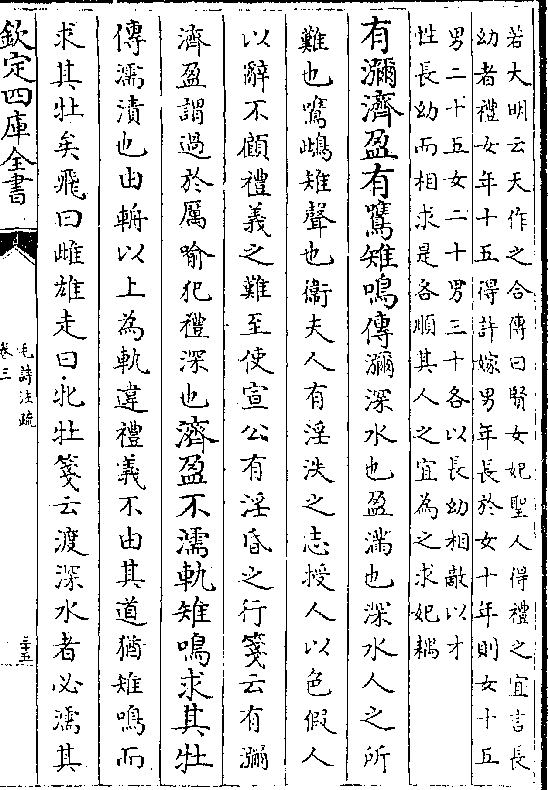 若大明云天作之合傳曰賢女妃聖人得禮之宜言長
幼者禮女年十五得許嫁男年長於女十年則女十五
男二十五女二十男三十各以長幼相敵以才
性長幼而相求是各順其人之宜為之求妃耦
有瀰濟盈有鷕雉鳴傳瀰深水也盈滿也深水人之所
難也鷕䳄雉聲也衞夫人有淫泆之志授人以色假人
以辭不顧禮義之難至使宣公有淫昏之行箋云有瀰
濟盈謂過於厲喻犯禮深也濟盈不濡軌雉鳴求其牡
傳濡漬也由輈以上為軌違禮義不由其道猶雉鳴而
求其牡矣飛曰雌雄走曰牝牡箋云渡深水者必濡其
欽定四庫全書
毛詩注疏
卷三
三十五